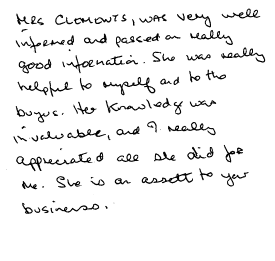 Mrs Clemonts, was very well
informed and passed on really
good information. She was really
helpful to myself and to the
buyers. Her knowledge was
invaluable, and I really
appreciated all she did for
me. She is an assett to your
business.